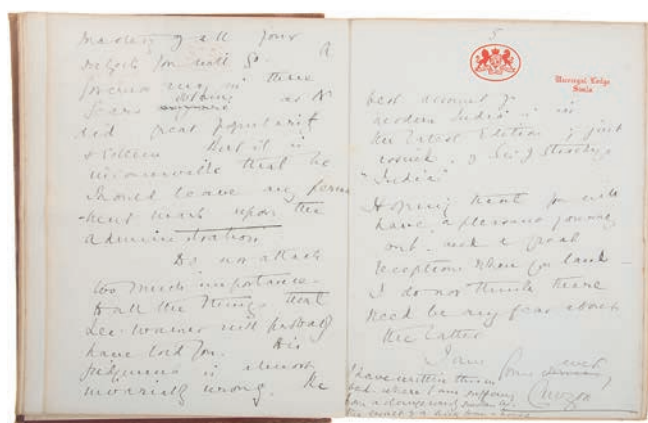 mastery of all your
subjects you will go. A
foreign may in three
years obtain as N
did great popularity
& esteem But it is
inconceivable that he
should leave any perma
-nent mark upon the
administration
Do not attach
too much importance
to all the things that
Lee-Warner will probably
have told you. His
judgment is almost
invariably wrong. The
5
Viceregal Lodge
Simla
best account of
modern India is in
the latest edition, just
issued, of Sir J Strachey's
"India"
Hoping that you will
have a pleasant journey
out, and a great
reception when you land -
I do not think there
need be any fear about
the latter
I am
Yours ever
Curzon
I have written this in
bed where I am suffering
from a
the result of a from a horse